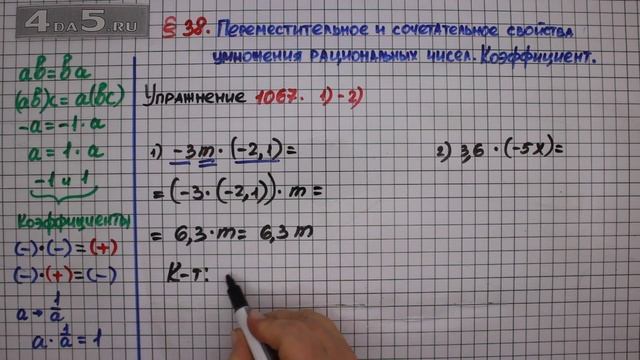 4DA5.RU
§ 38. Переместительное и сочетательное свойства
умножения рациональных чисел. Коэффициент.
ab=ba
(ab)c=a(bc)
-a=-1·a
a=1·a
-1 и 1
Коэффициенты
(-)·(-)=(+)
(-)·(+)=(-)
a→1/a
a·1/a=1
Упражнение 1067. 1)-2)
1) -3m·(-2,1)=
=(-3·(-2,1))·m=
=6,3·m=6,3m
К-т:
2) 3,6·(-5x)=